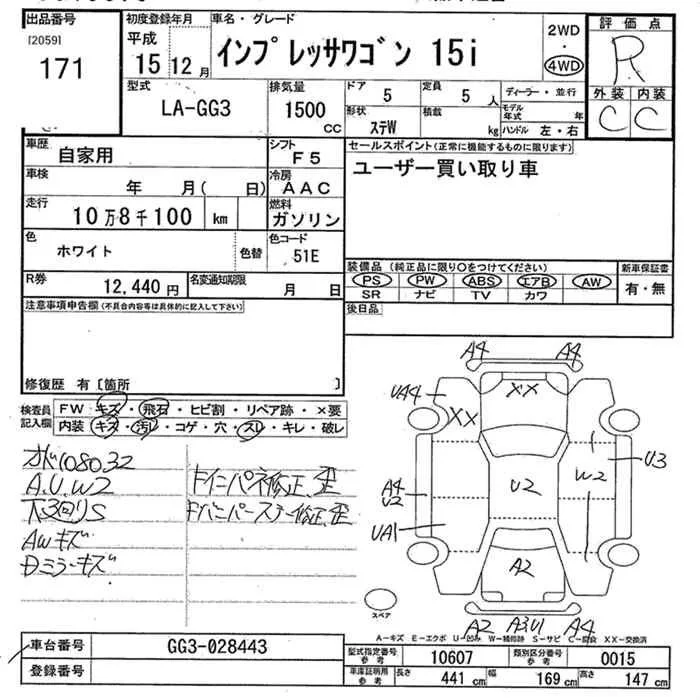 出品番号
[2059]
171
初度登録年月
平成
15 12月
車名・グレード
インプレッサワゴン 15i
2WD
・
4WD
評価点
R
外装 内装
C C
型式
LA-GG3
排気量
1500
CC
ドア
5
定員
5 人
ディーラー・並行
モデル年式 年
形状
ステW
積載
kg
ハンドル 左・右
車歴
自家用
シフト
F5
セールスポイント(正常に機能するものに限ります)
ユーザー買い取り車
車検
年 月( 日)
冷房
AAC
走行
10万8千100 km
燃料
ガソリン
色
ホワイト
色替
色コード
51E
装備品(純正品に限り〇をつけてください)
PS PW ABS エアB AW
SR ナビ TV カワ
新車保証書
有・無
R券
12,440 円
名変通知期限
月 日
後日品
注意事項申告欄(不具合内容等は具体的に記入して下さい)
修復歴 有[箇所 ]
検査員
記入欄
FW キズ・飛石・ヒビ割・リペア跡・×要
内装 キズ・汚レ・コゲ・穴・スレ・キレ・破レ
108032
A.U.W2
下3回りS
AWキズ
Dミラーキズ
A4 A4
UA4
XX
XX
U3
A4
U2
U2
W2
UA1
A2
スペア
A2 A3U1 A4
A―キズ E―エクボ U―凹み W―補修跡 S―サビ C―腐食 XX―交換済
車台番号
GG3-028443
登録番号
型式指定番号
参考
10607
類別区分番号
参考
0015
車庫証明用
参考
長さ
441 cm
幅
169 cm
高さ
147 cm